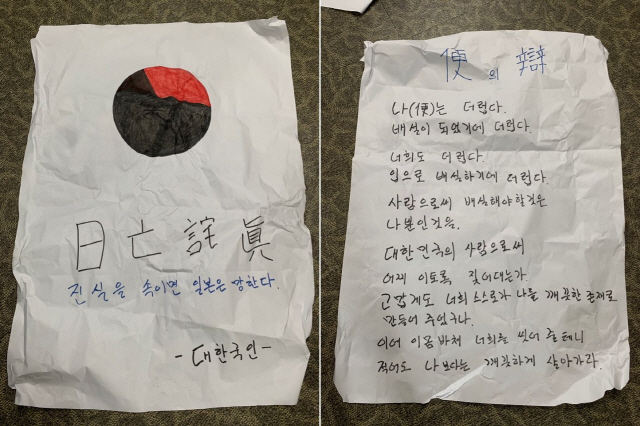 日亡詮眞
진실을 속이면 일본은 망한다.
-대한국인-
便의 辯
나(便)는 더럽다.
배설이 되었기에 더럽다.
너희도 더럽다.
입으로 배설하기에 더럽다.
사람으로써 배설해야할것은
나뿐인것을.
대한민국의 사람으로써
어찌 이토록 짖어대는가
고맙게도 너희 스스로가 나를 깨끗한 존재로
만들어 주었구나.
이에 이몸바쳐 너희를 씻어 줄테니
적어도 나 보다는 깨끗하게 살아가라.